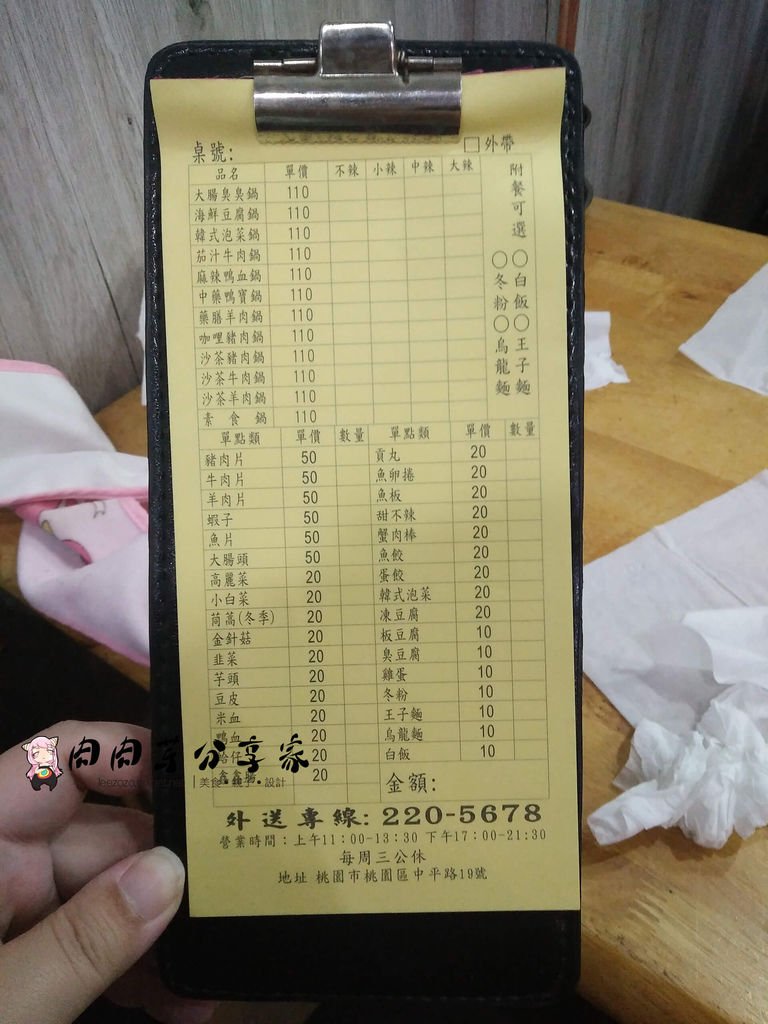 桌號:
□外帶
品名 單價 不辣 小辣 中辣 大辣
大腸臭臭鍋 110
海鮮豆腐鍋 110
韓式泡菜鍋 110
茄汁牛肉鍋 110
麻辣鴨血鍋 110
中藥鴨寶鍋 110
藥膳羊肉鍋 110
咖哩豬肉鍋 110
沙茶豬肉鍋 110
沙茶牛肉鍋 110
沙茶羊肉鍋 110
素食鍋 110
附餐可選
○白飯○王子麵
○冬粉○烏龍麵
單點類 單價 數量 單點類 單價 數量
豬肉片 50 貢丸 20
牛肉片 50 魚卵捲 20
羊肉片 50 魚板 20
蝦子 50 甜不辣 20
魚片 50 蟹肉棒 20
大腸頭 50 魚餃 20
高麗菜 20 蛋餃 20
小白菜 20 韓式泡菜 20
茼蒿(冬季) 20 凍豆腐 20
金針菇 20 板豆腐 10
韭菜 20 臭豆腐 10
芋頭 20 雞蛋 10
豆皮 20 冬粉 10
米血 20 王子麵 10
鴨血 20 烏龍麵 10
蛤仔 20 白飯 10
鑫鑫腸 20 金額:
外送專線: 220-5678
營業時間：上午11:00-13:30 下午17:00-21:30
每周三公休
地址 桃園市桃園區中平路19號
肉肉芽分享家
美食．親子．設計